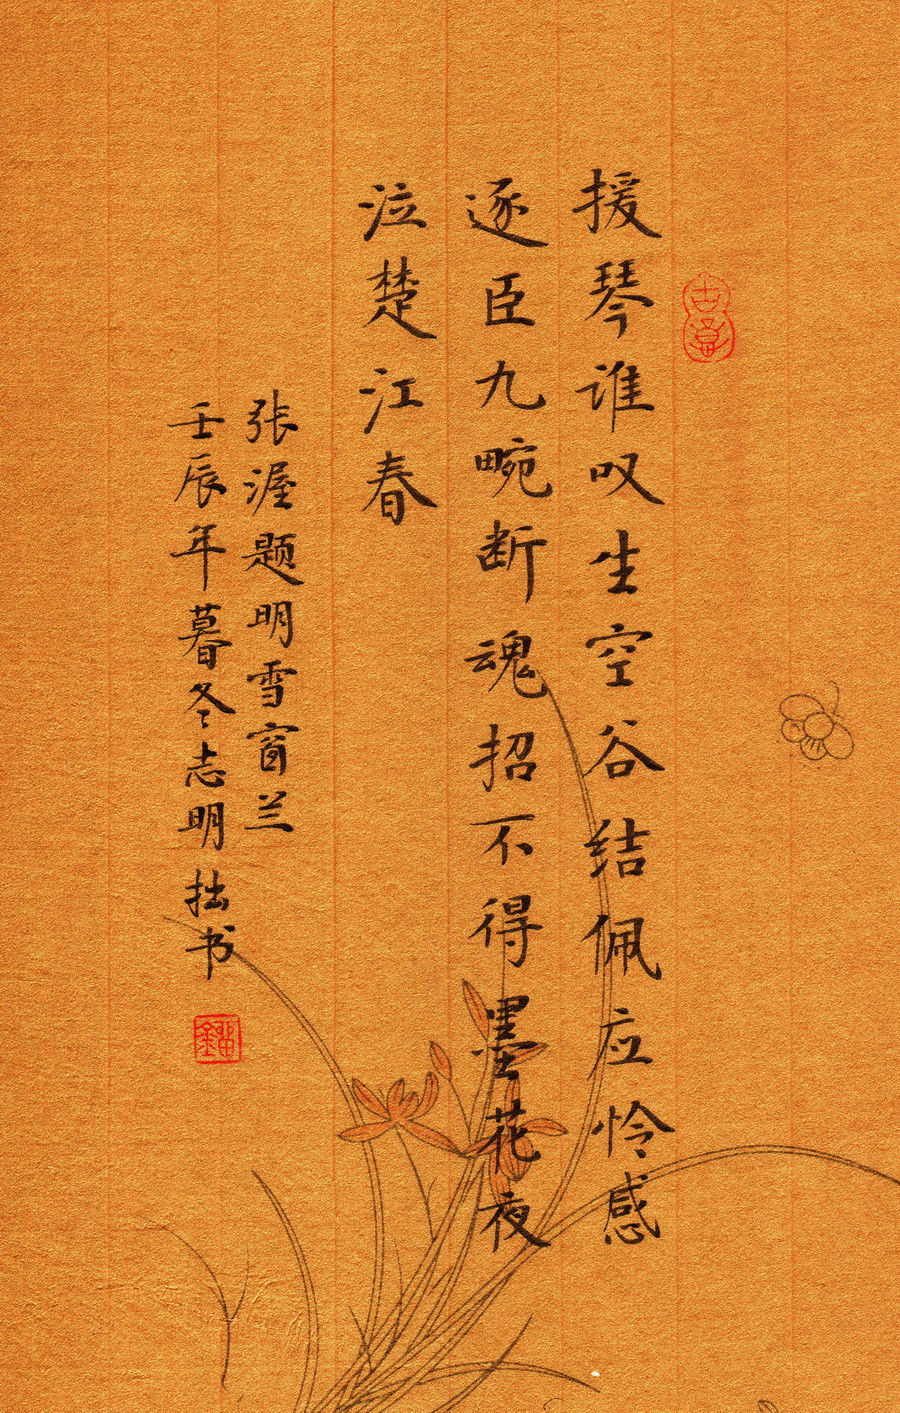 援琴谁叹生空谷结佩应怜感
逐臣九畹断魂招不得墨花夜
泣楚江春
张渥题明雪窗兰
壬辰年暮冬志明拙书